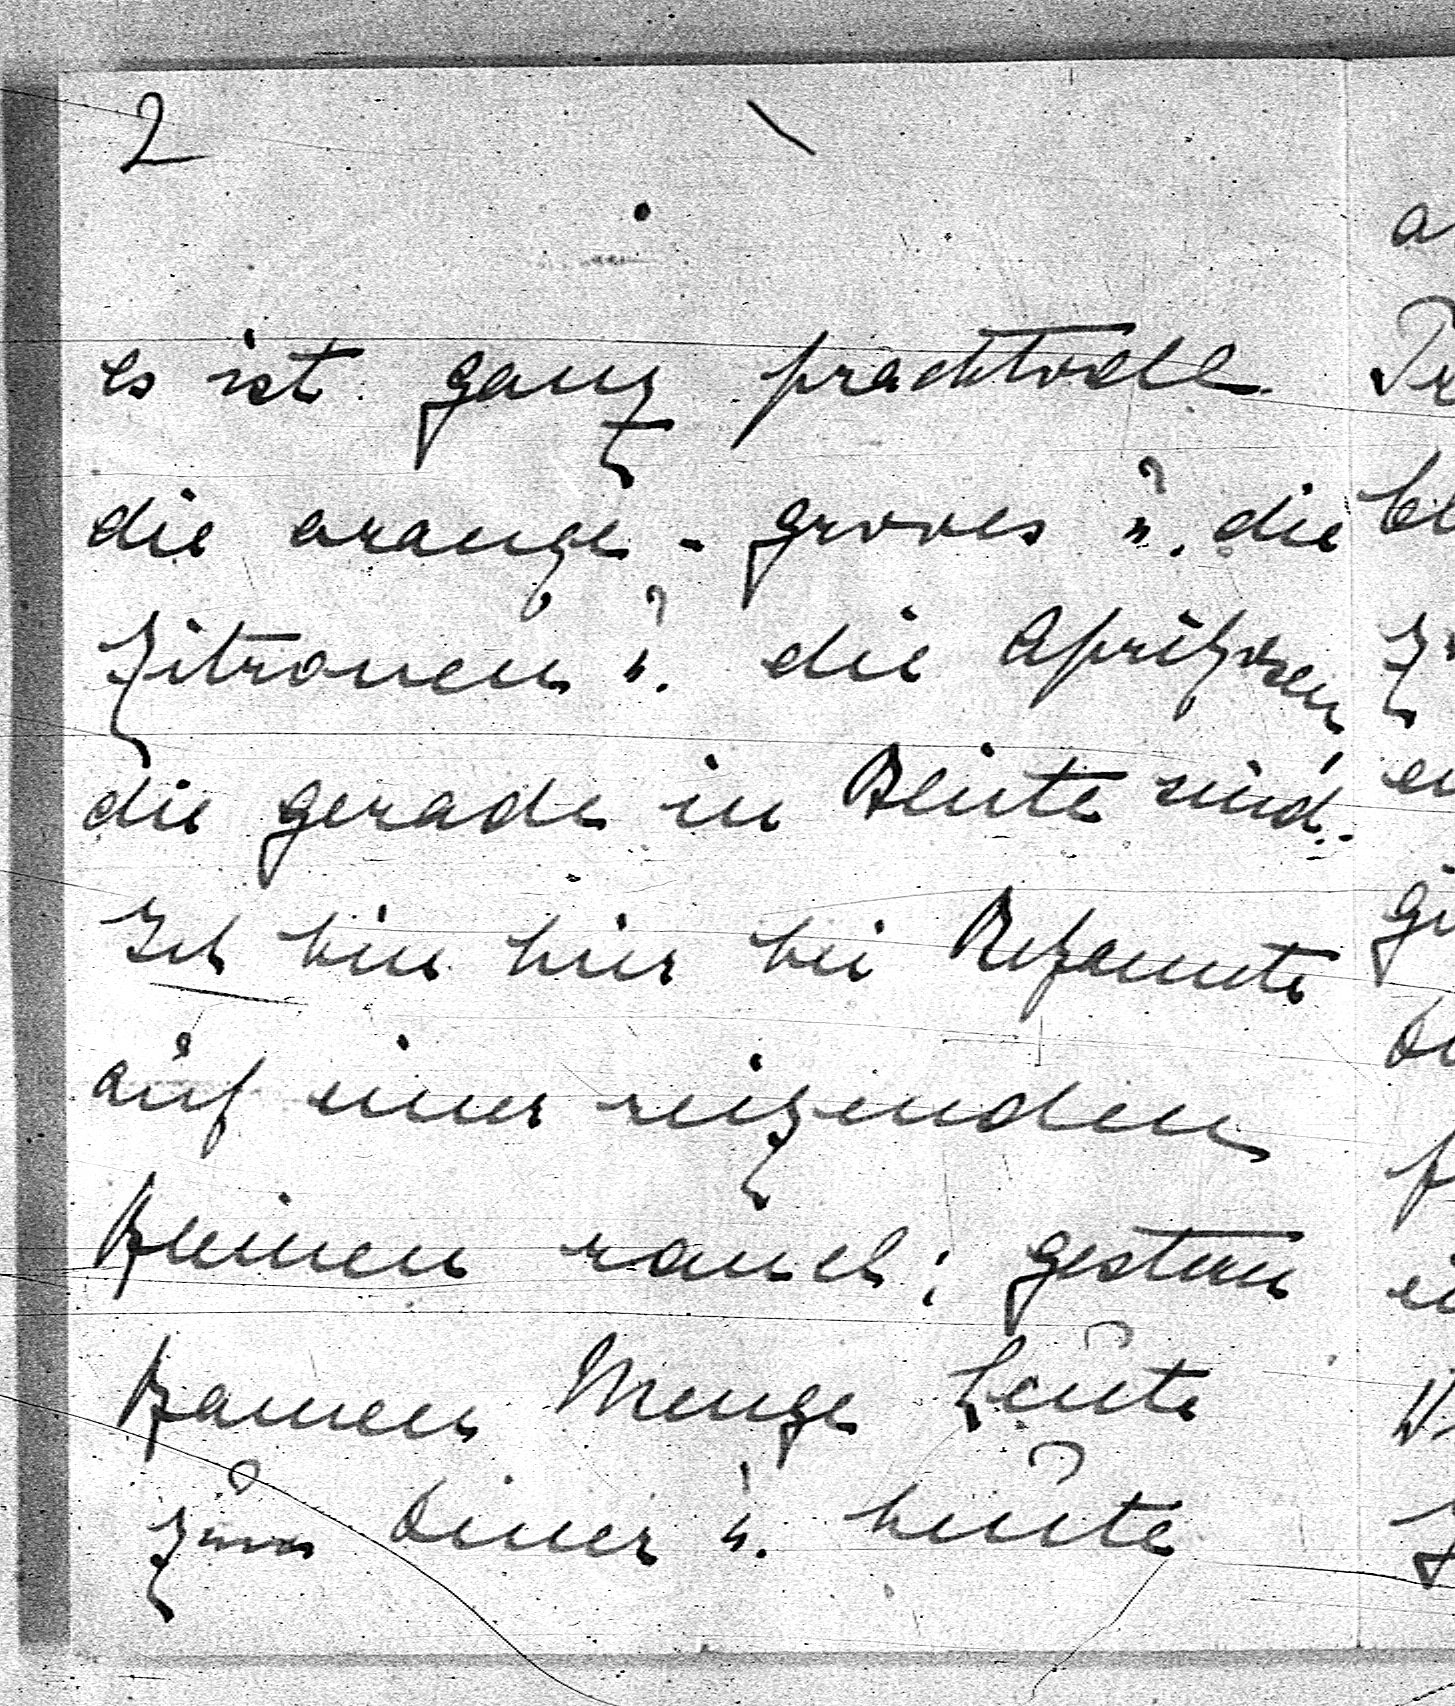 2
es ist ganz prachtvoll
die orange-groves u. die
Zitronen u. die Aprikosen
die gerade in Blüte sind.
Ich bin hier bei Bekannte
auf einer reizenden
kleinen ranch; gestern
kamen Menge Leute
zum Diner u. heute